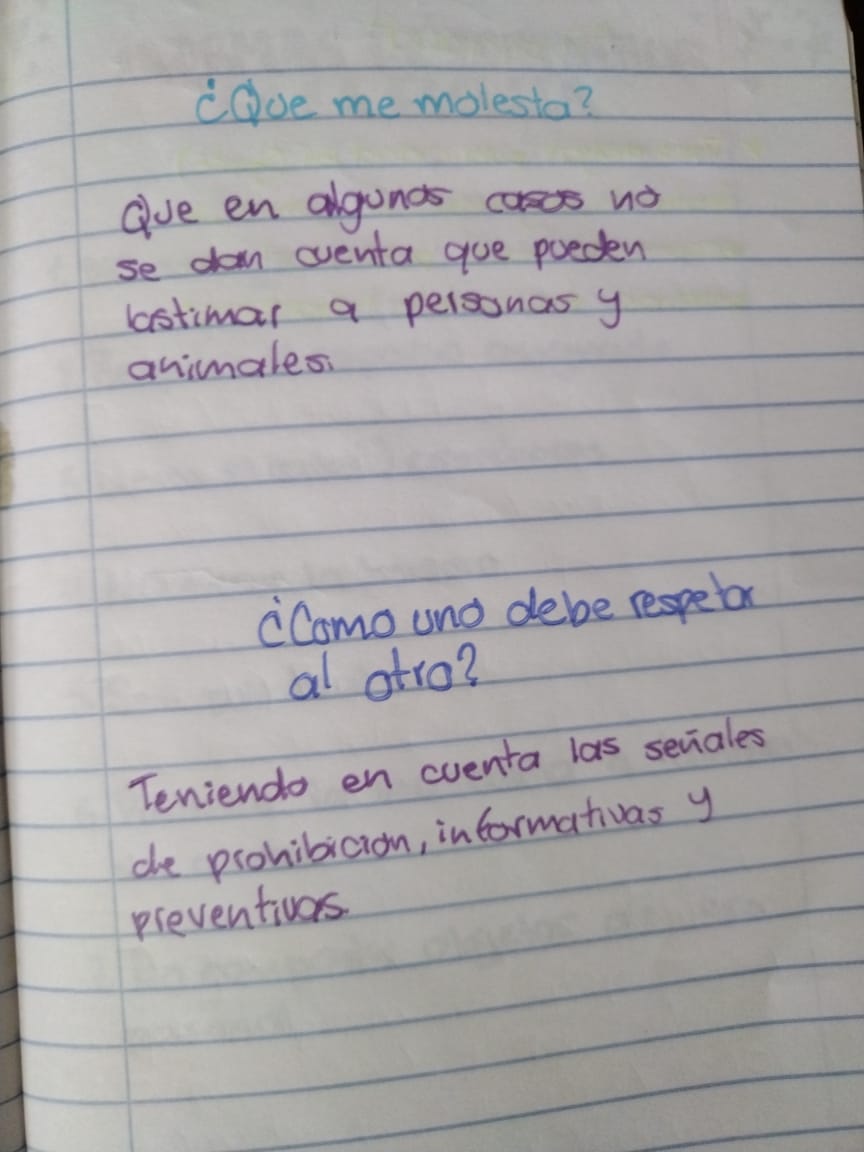 ¿Que me molesta?
Que en algunos casos no
se dan cuenta que pueden
lastimar a personas y
animales.
¿Como uno debe respetar
al otro?
Teniendo en cuenta las señales
de prohibicion, informativas y
preventivas.